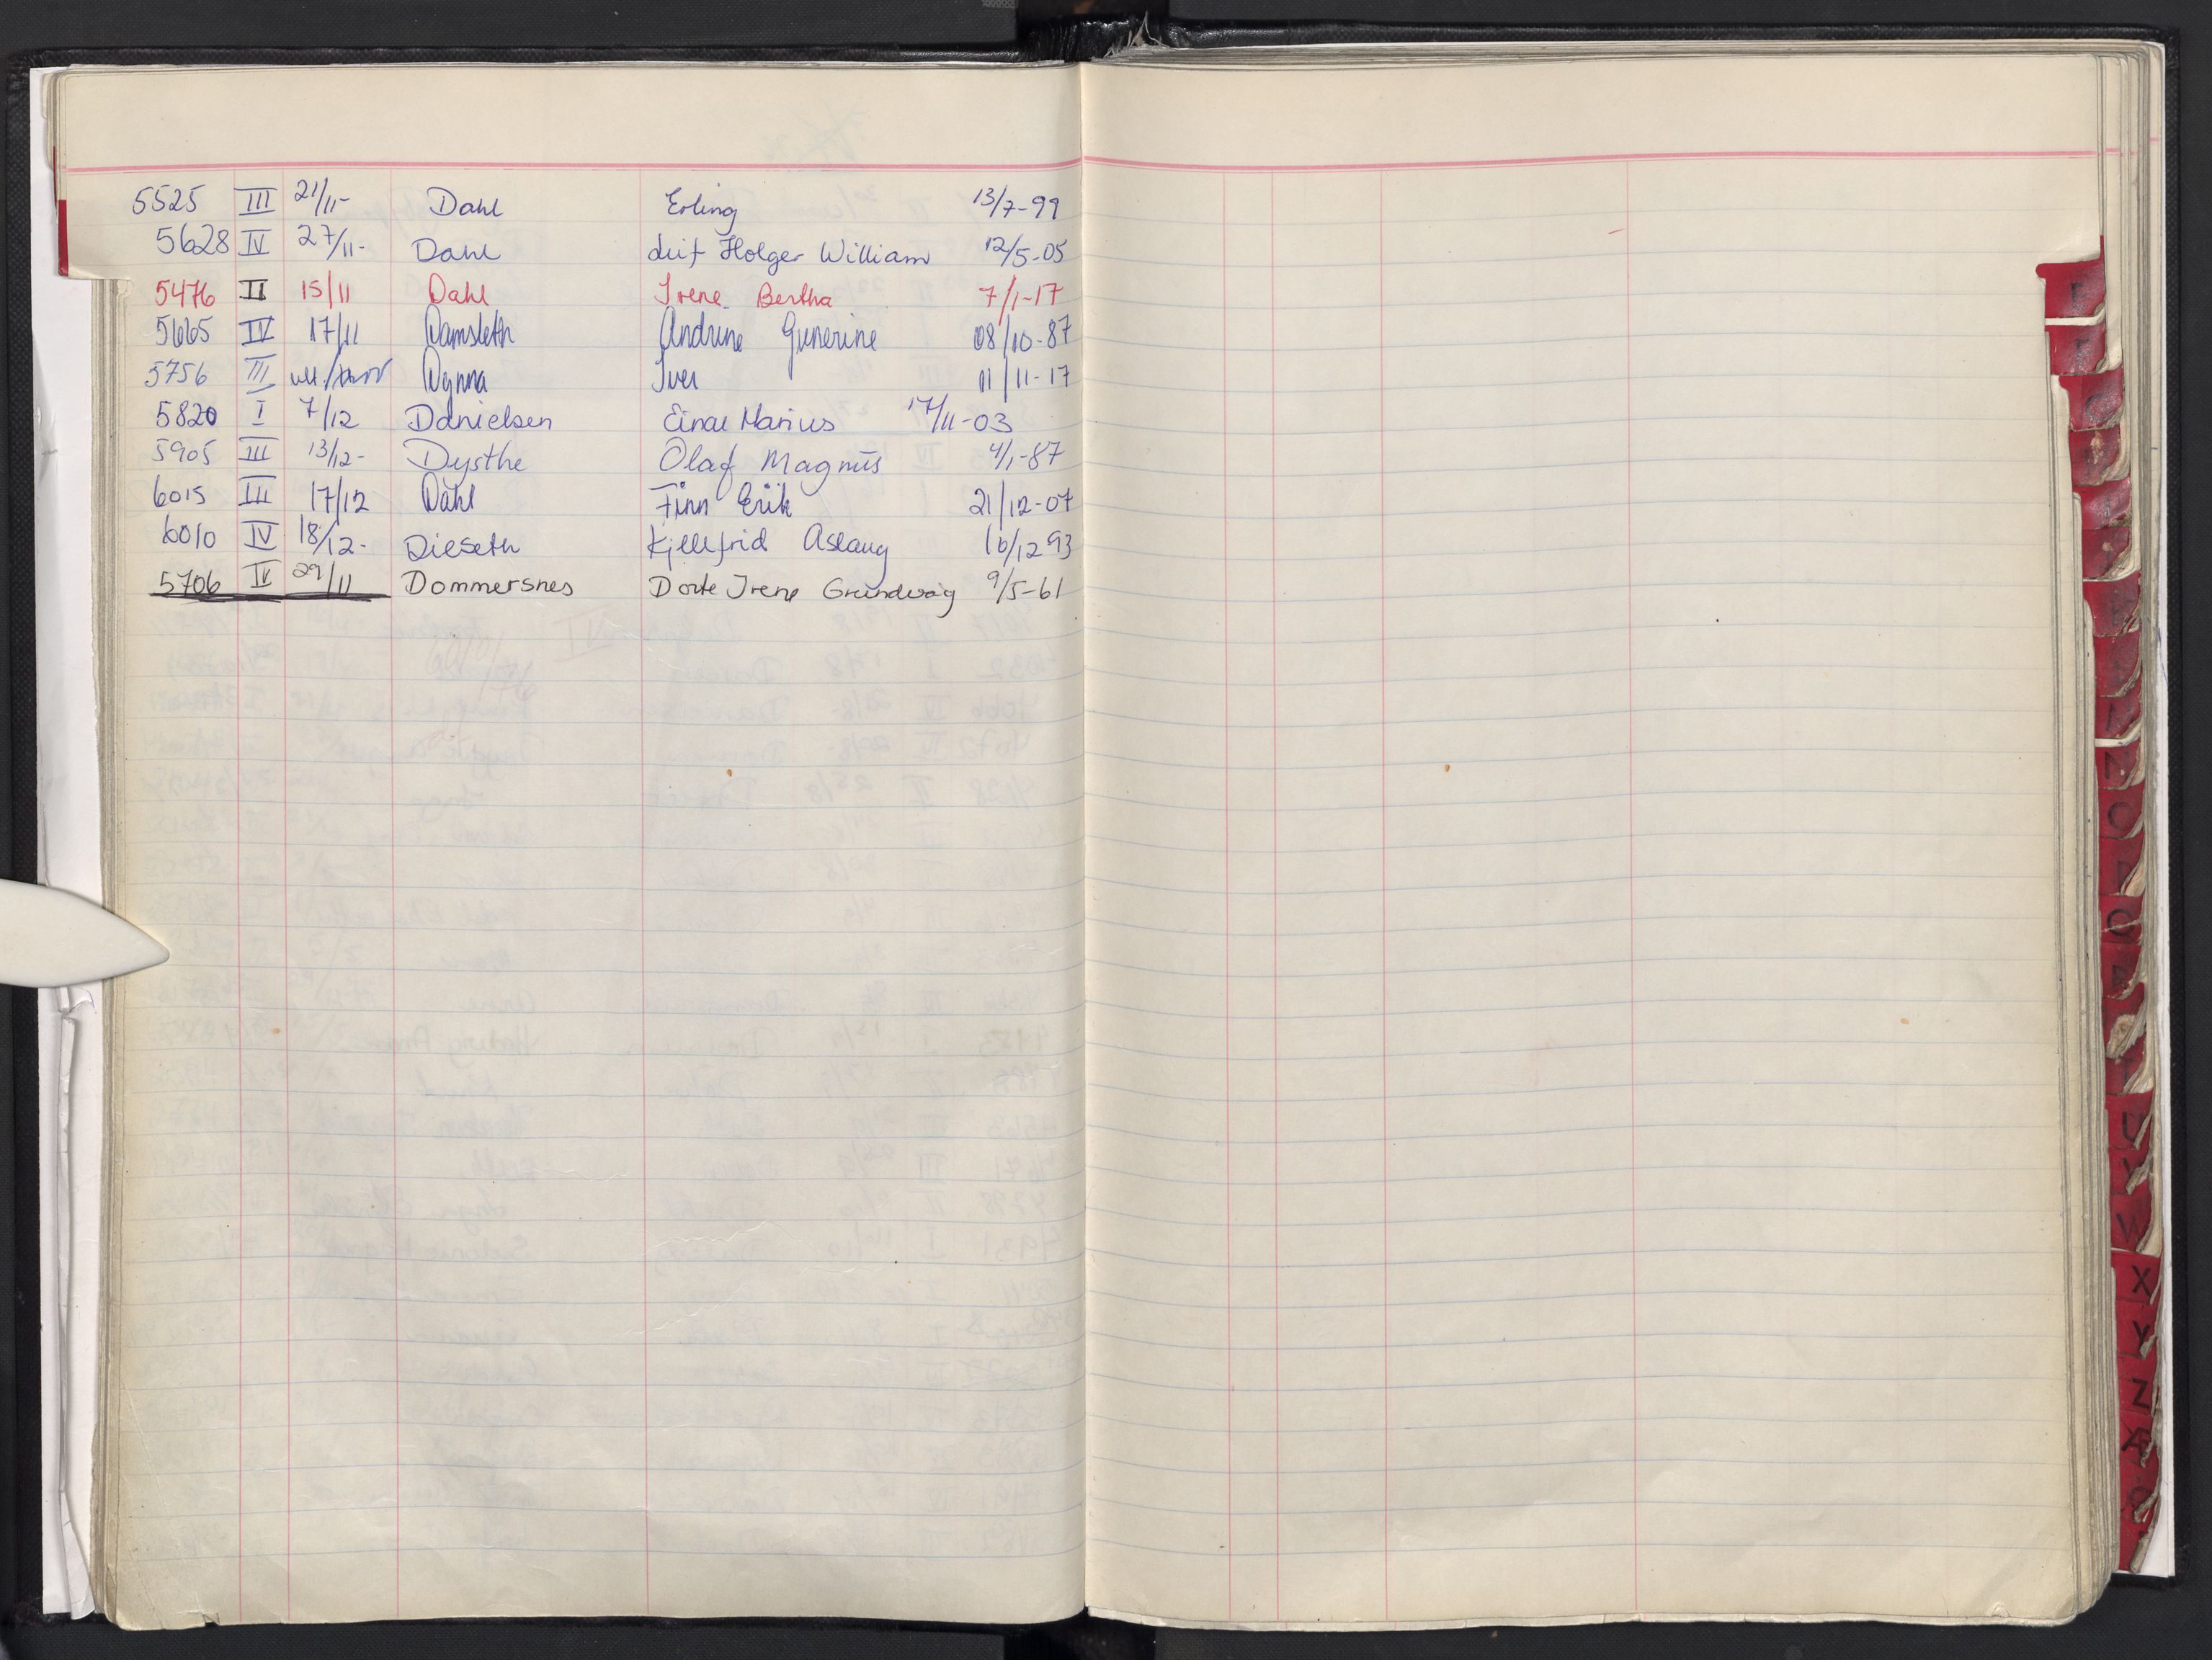 5525 III 21/11- Dahl Erling 13/7-99
5628 IV 27/11- Dahl Leif Holger William 12/5-05
5476 II 15/11 Dahl Irene Bertha 7/1-17
5665 IV 17/11 Damsleth Andrine Gunerine 08/10-87
5756 III Dynna Iver 11/11-17
5820 I 7/12 Danielsen Einar Marius 17/11-03
5905 III 13/12- Dysthe Olaf Magnus 4/1-87
6015 III 17/12 Dahl Finn Erik 21/12-07
6010 IV 18/12- Dieseth Kjellfrid Aslaug 16/12 93
5706 IV 29/11 Dommersnes Dorte Irene Grundvåg 9/5-61
N
O
P
Q
U
V
W
X
Y
Z
Æ
Ø